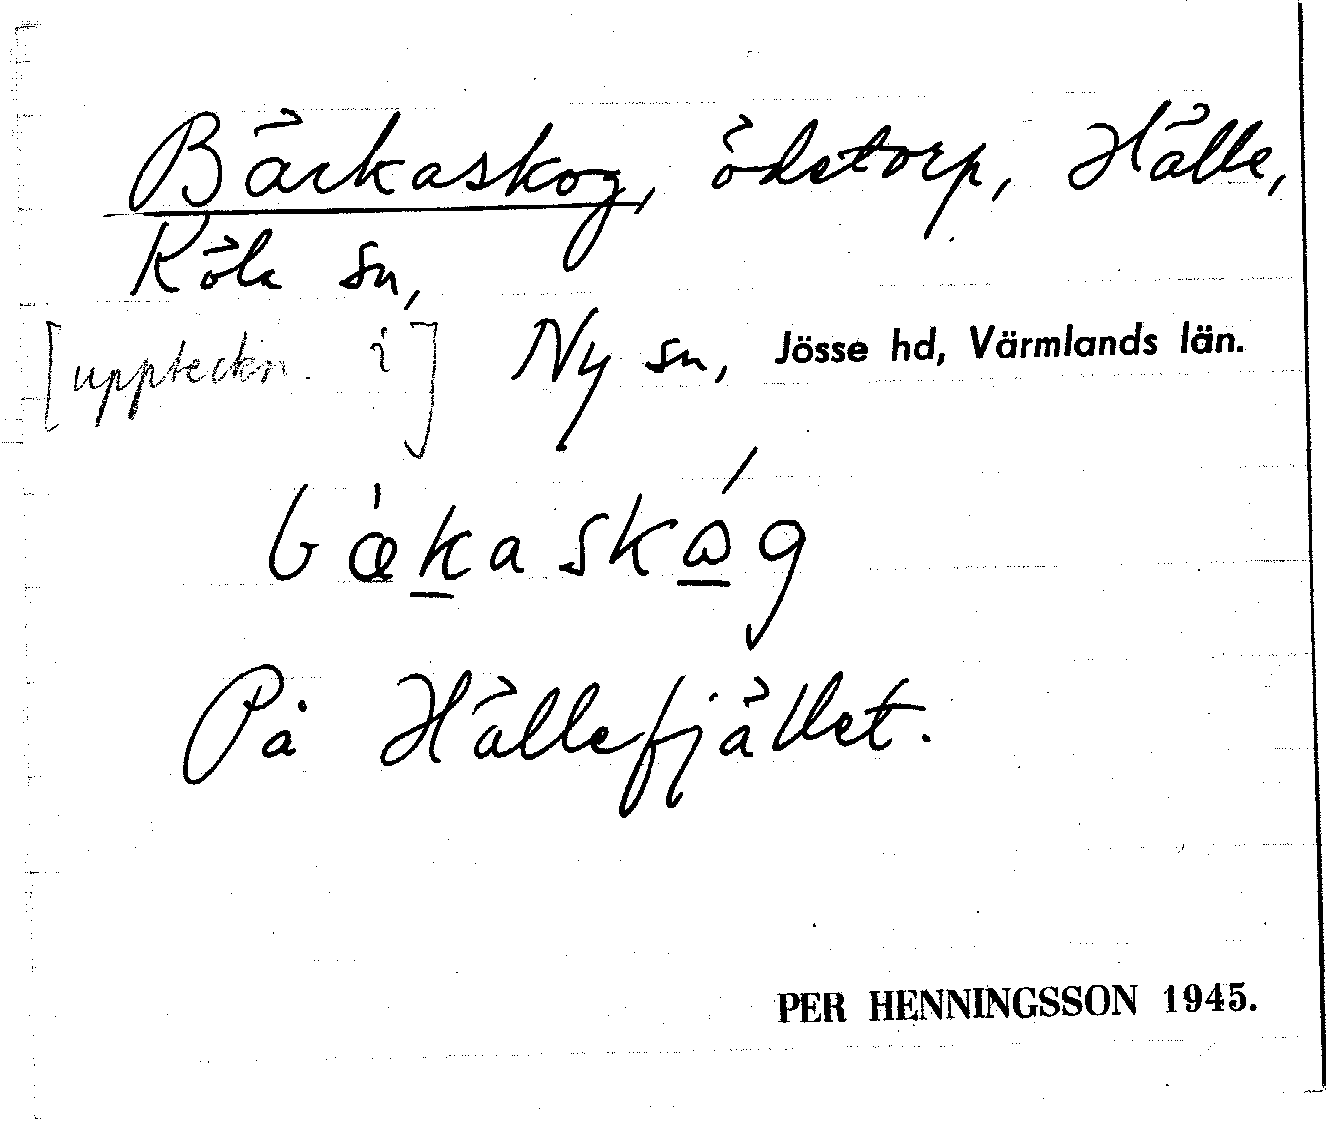 Bäckaskog, ödetorp, Hälle,
Köla sn,
[uppteckn. i] Ny sn, Jösse hd, Värmlands län.
bækaskóg
På Hällefjället.
PER HENNINGSSON 1945.